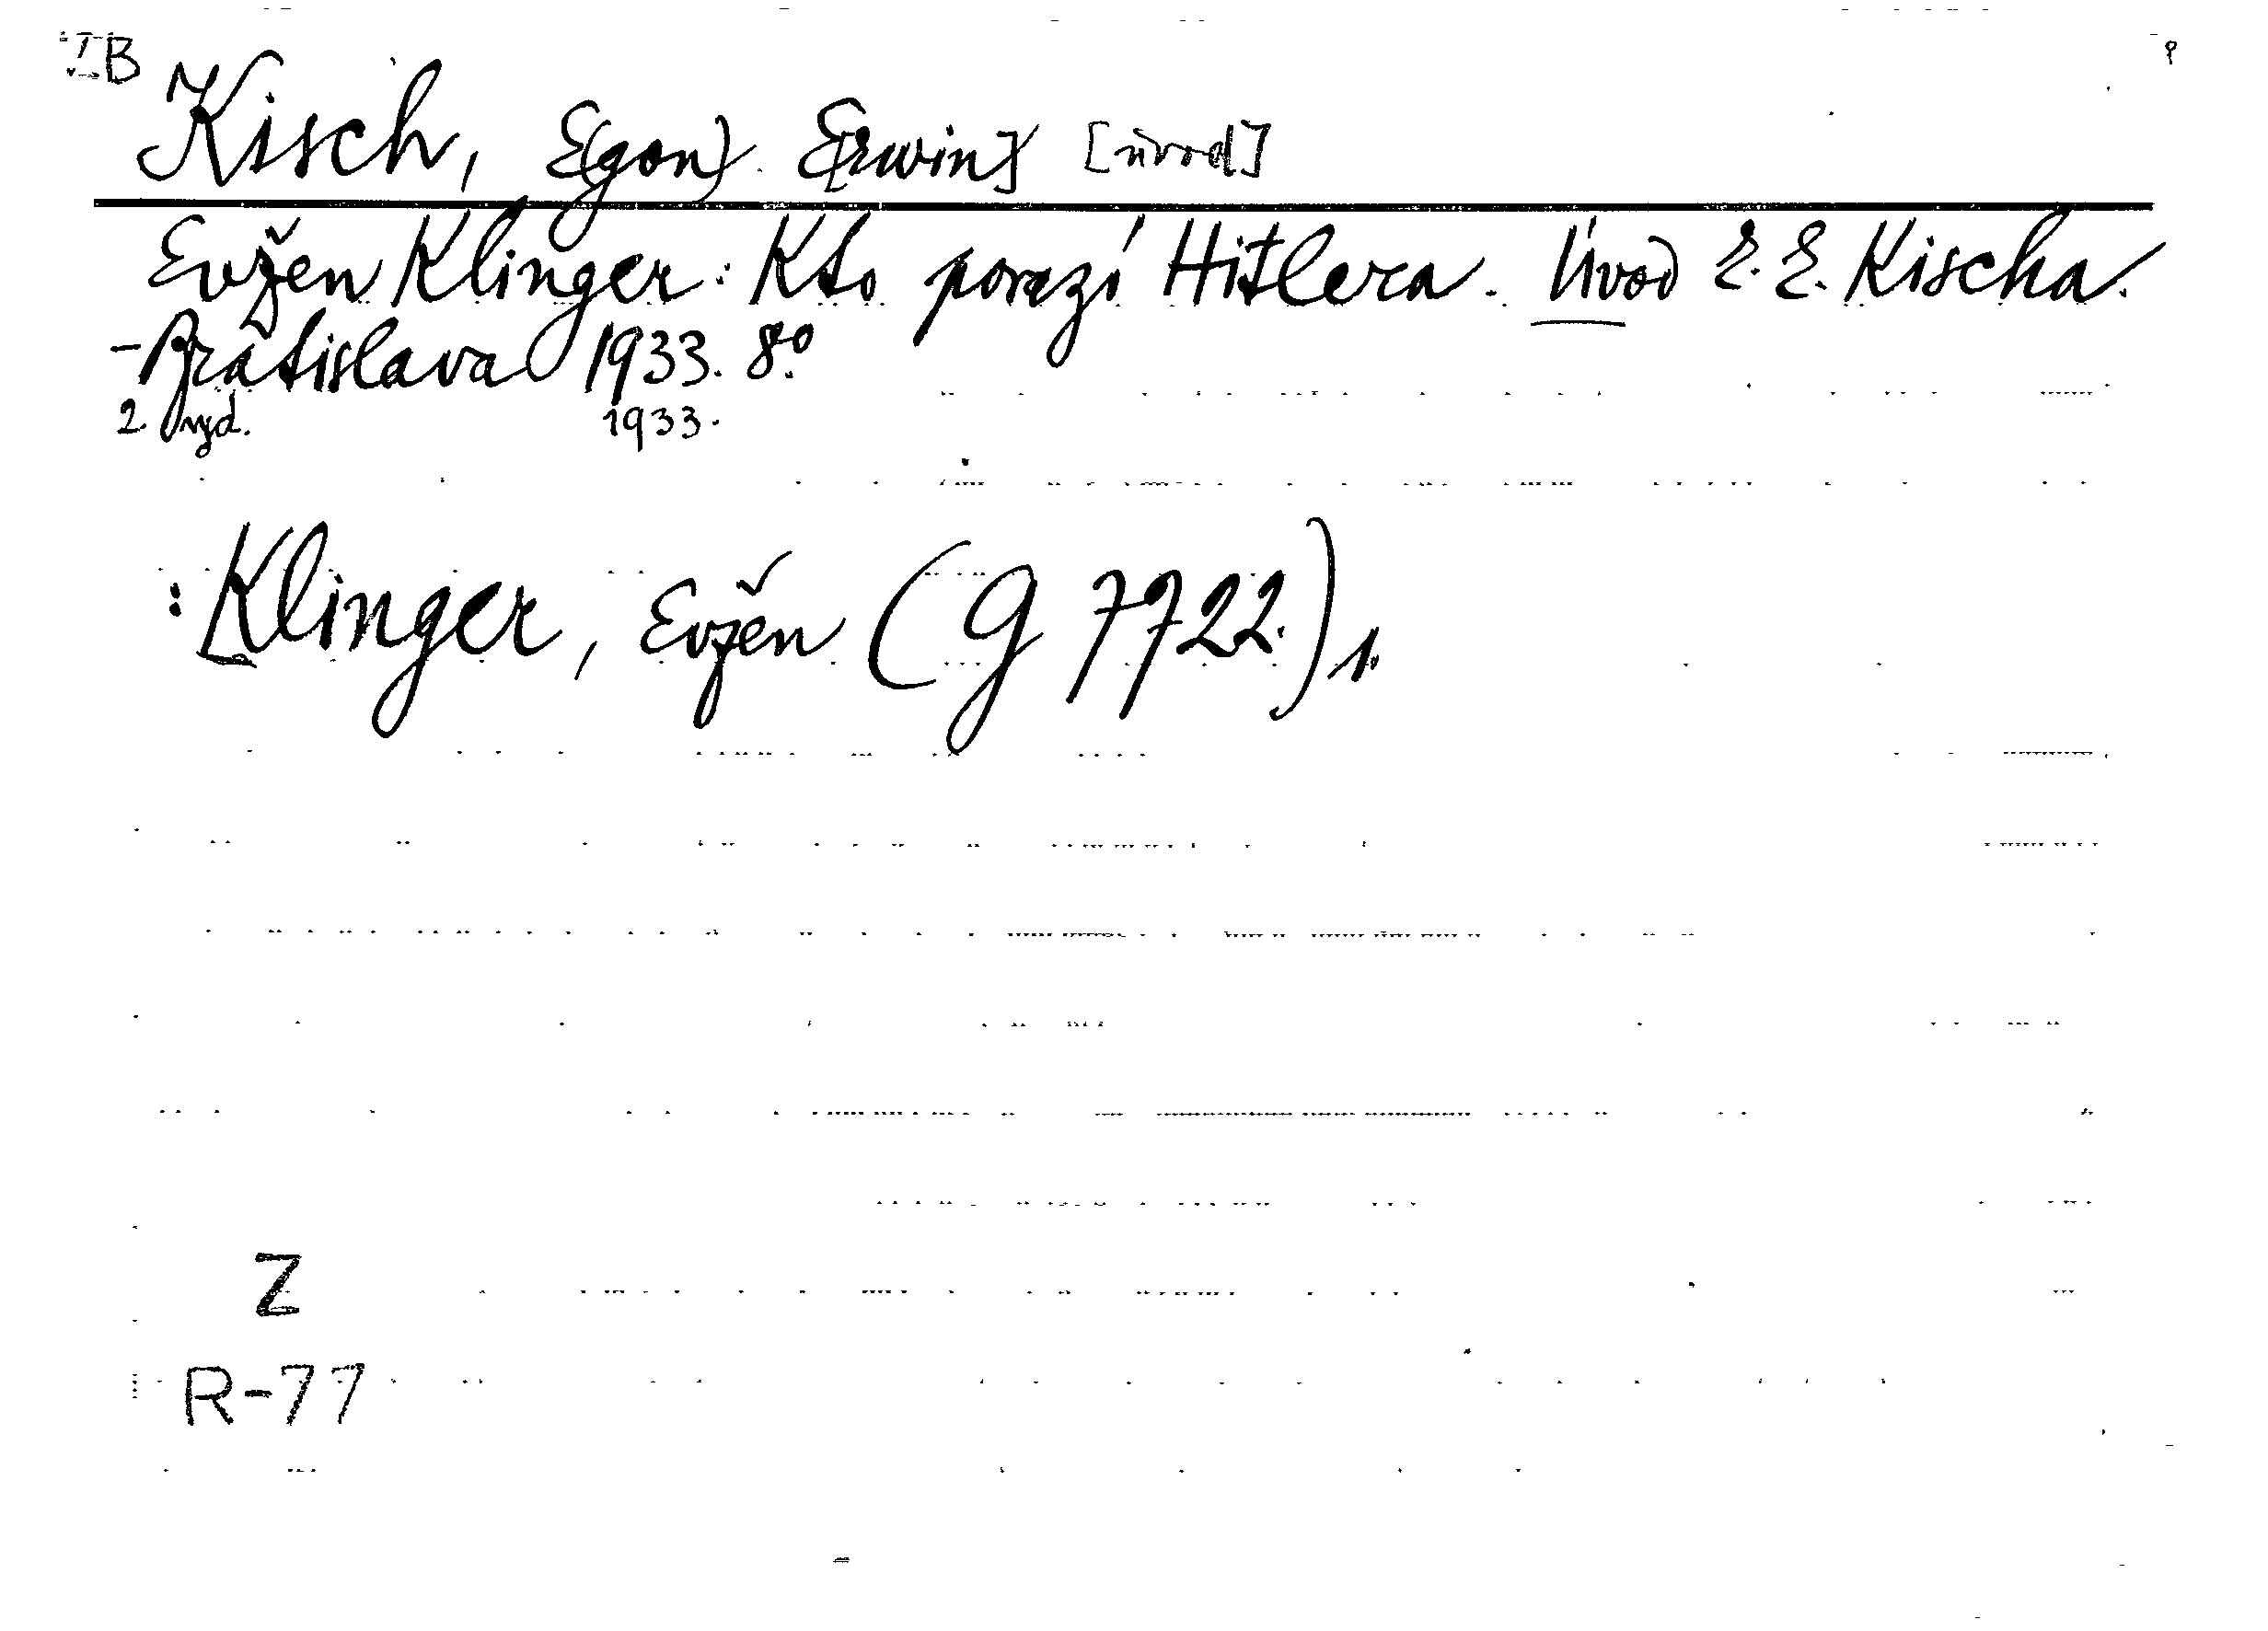 ZB
Kisch, E(gon) E[rwin] [úvod]
Evžen Klinger: Kto porazí Hitlera. Úvod E. E. Kischa.
-Bratislava 1933. 8°.
2. vyd. 1933.
: Klinger, Evžen (G 7722.) 1.
Z
R-77